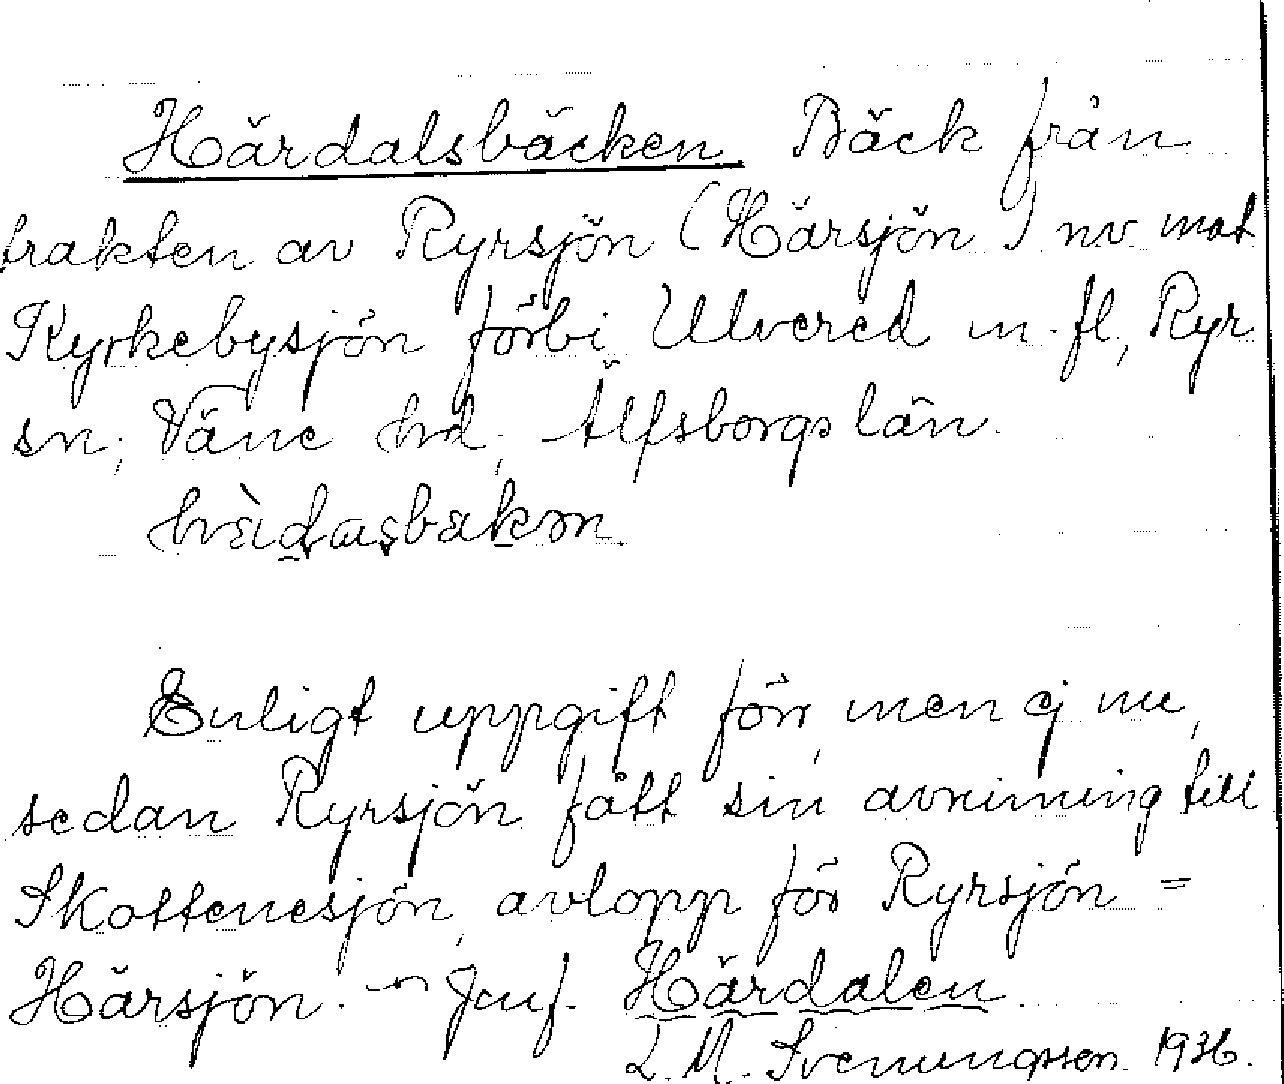 Härdalsbäcken. Bäck från
trakten av Ryrsjön (Härsjön) nv. mot
Kyrkebysjön förbi Ulvered m. fl., Ryr
sn, Väne hd, Älfsborgs län.
Enligt uppgift förr, men ej nu,
sedan Ryrsjön fått sin avrinning till
Skottenesjön, avlopp för Ryrsjön =
Härsjön. — Jmf. Härdalen.
L. M. Svenungsson. 1936.